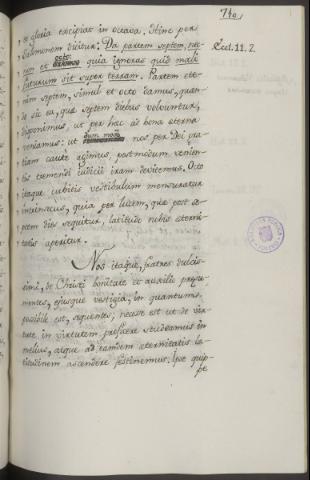 740.
et gloria excipiat in octava. Hinc per
Salomonem dicitur: Da partem septem, nec
non et octo quia ignoras quid mali Eccl. 11. 2.
futurum sit super terram. Partem ete
nim septem, simul et octo damus, quan
do sic ea, quæ septem diebus volvuntur,
disponimus, ut per hæc ad bona æterna
veniamus: ut dum modo nos per Dei gra
tiam caute agimus, postmodum venien
tis tremendi judicii iram devitemus. Octo
itaque cubitis vestibulum mensuratur
intrinsecus, quia per lucem, quæ post se
ptem dies sequitur, latitudo nobis æterni
tatis aperitur.
Nos itaque, fratres dulcis
simi, de Christi bonitate et auxilio præsu
mentes, ejusque vestigia, in quantum
possibile est, sequentes; necesse est ut de vir
tute in virtutem proficere studeamus in
melius, atque ad eamdem æternitatis la
titudinem ascendere festinemus. Ipse quip-
pe